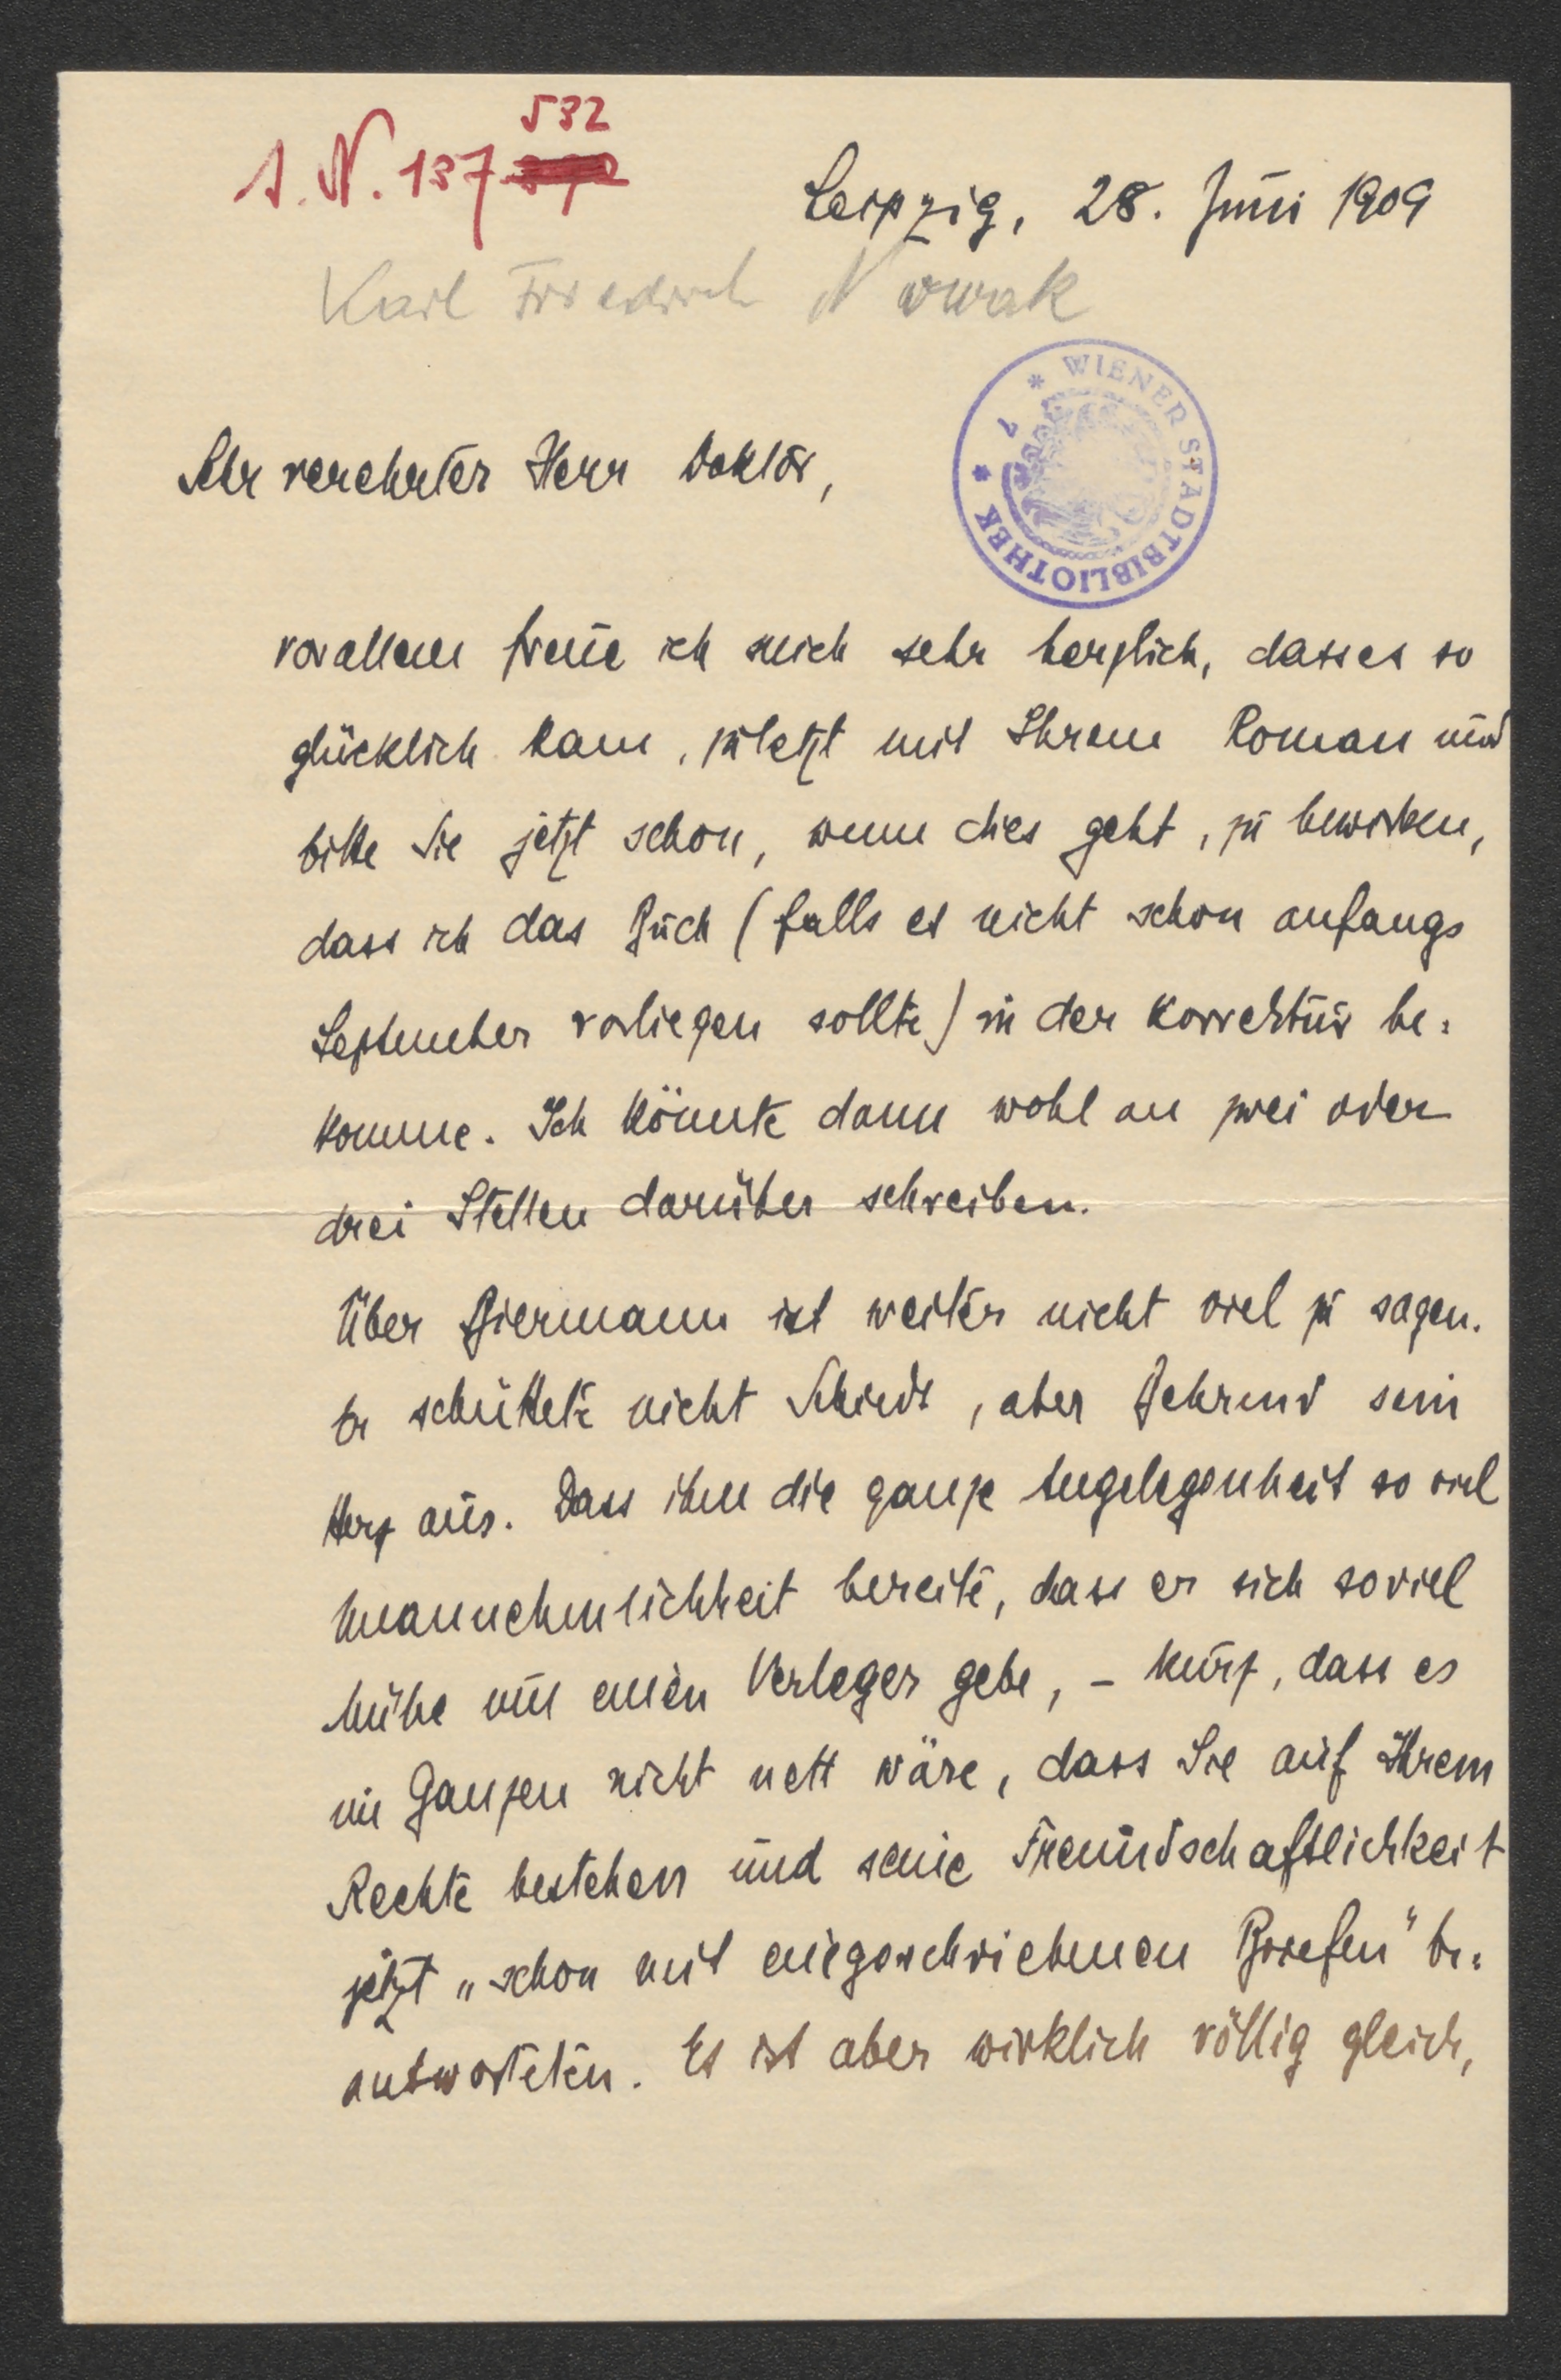 532
I. N. 137
Leipzig, 28. Juni 1909
Karl Friedrich Nowak
WIENER STADTBIBLIOTHEK
Sehr verehrter Herr Doktor,
vor allem freue ich mich sehr herzlich, dass es so
glücklich kam, zuletzt mit Ihrem Roman und
bitte Sie jetzt schon, wenn dies geht, zu bewirken,
dass ich das Buch (falls es nicht schon anfangs
September vorliegen sollte) in der Korrektur be=
komme. Ich könnte dann wohl an zwei oder
drei Stellen darüber schreiben.
Über Biermann ist weiter nicht viel zu sagen.
Er schüttete nicht, aber Behrend sein
Herz aus. Dass ihm die ganze Angelegenheit so viel
Unannehmlichkeit bereite, dass er sich soviel
Mühe um einen Verleger gebe, – kurz, dass es
im Ganzen nicht nett wäre, dass Sie auf Ihrem
Rechte bestehen und seine Freundschaftlichkeit
jetzt „schon mit eingeschriebenen Briefen" be=
antworteten. Es ist aber wirklich völlig gleich,